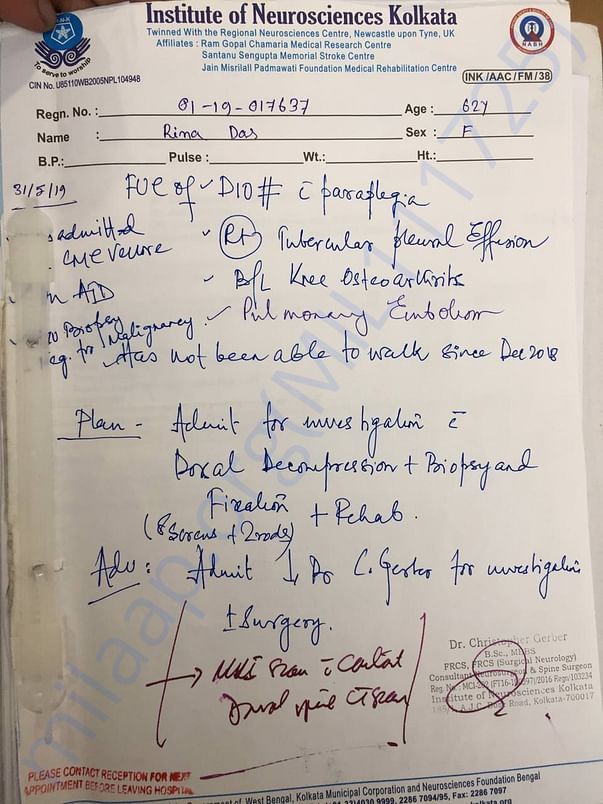 To serve to worship
NABH
Institute of Neurosciences Kolkata
Twinned With the Regional Neurosciences Centre, Newcastle upon Tyne, UK
Affiliates : Ram Gopal Chamaria Medical Research Centre
Santanu Sengupta Memorial Stroke Centre
Jain Misrilall Padmawati Foundation Medical Rehabilitation Centre
CIN No. U85110WB2005NPL104948
INK/AAC/FM/38
Regn. No. : 01-19-017637 Age : 62Y
Name : Rima Das Sex : F
B.P.: Pulse : Wt.: Ht.:
31/5/19 FUC of D10 # c paraplegia
admitted Rt Tubercular Pleural Effusion
CMC Vellore B/L Knee Osteoarthritis
on ATD Pulmonary Embolism
Biopsy
neg. for Malignancy Has not been able to walk since Dec 2018
Plan - Admit for investigation c
Dorsal Decompression + Biopsy and
Fixation + Rehab.
(8 Screws + 2 rods)
Adv : Admit ↓ Dr C. Gerber for investigation
± Surgery.
→ MRI Scan c Contrast
Dorsal spine CT Scan
Dr. Christopher Gerber
B.Sc., MBBS
FRCS, FRCS (Surgical Neurology)
Consultant Neurosurgeon & Spine Surgeon
Institute of Neurosciences Kolkata
Road, Kolkata-700017
PLEASE CONTACT RECEPTION FOR NEXT
APPOINTMENT BEFORE LEAVING HOSPITAL
of West Bengal, Kolkata Municipal Corporation and Neurosciences Foundation Bengal
4030 9999, 2286 7094/95, Fax: 2286 7097
milaap.org